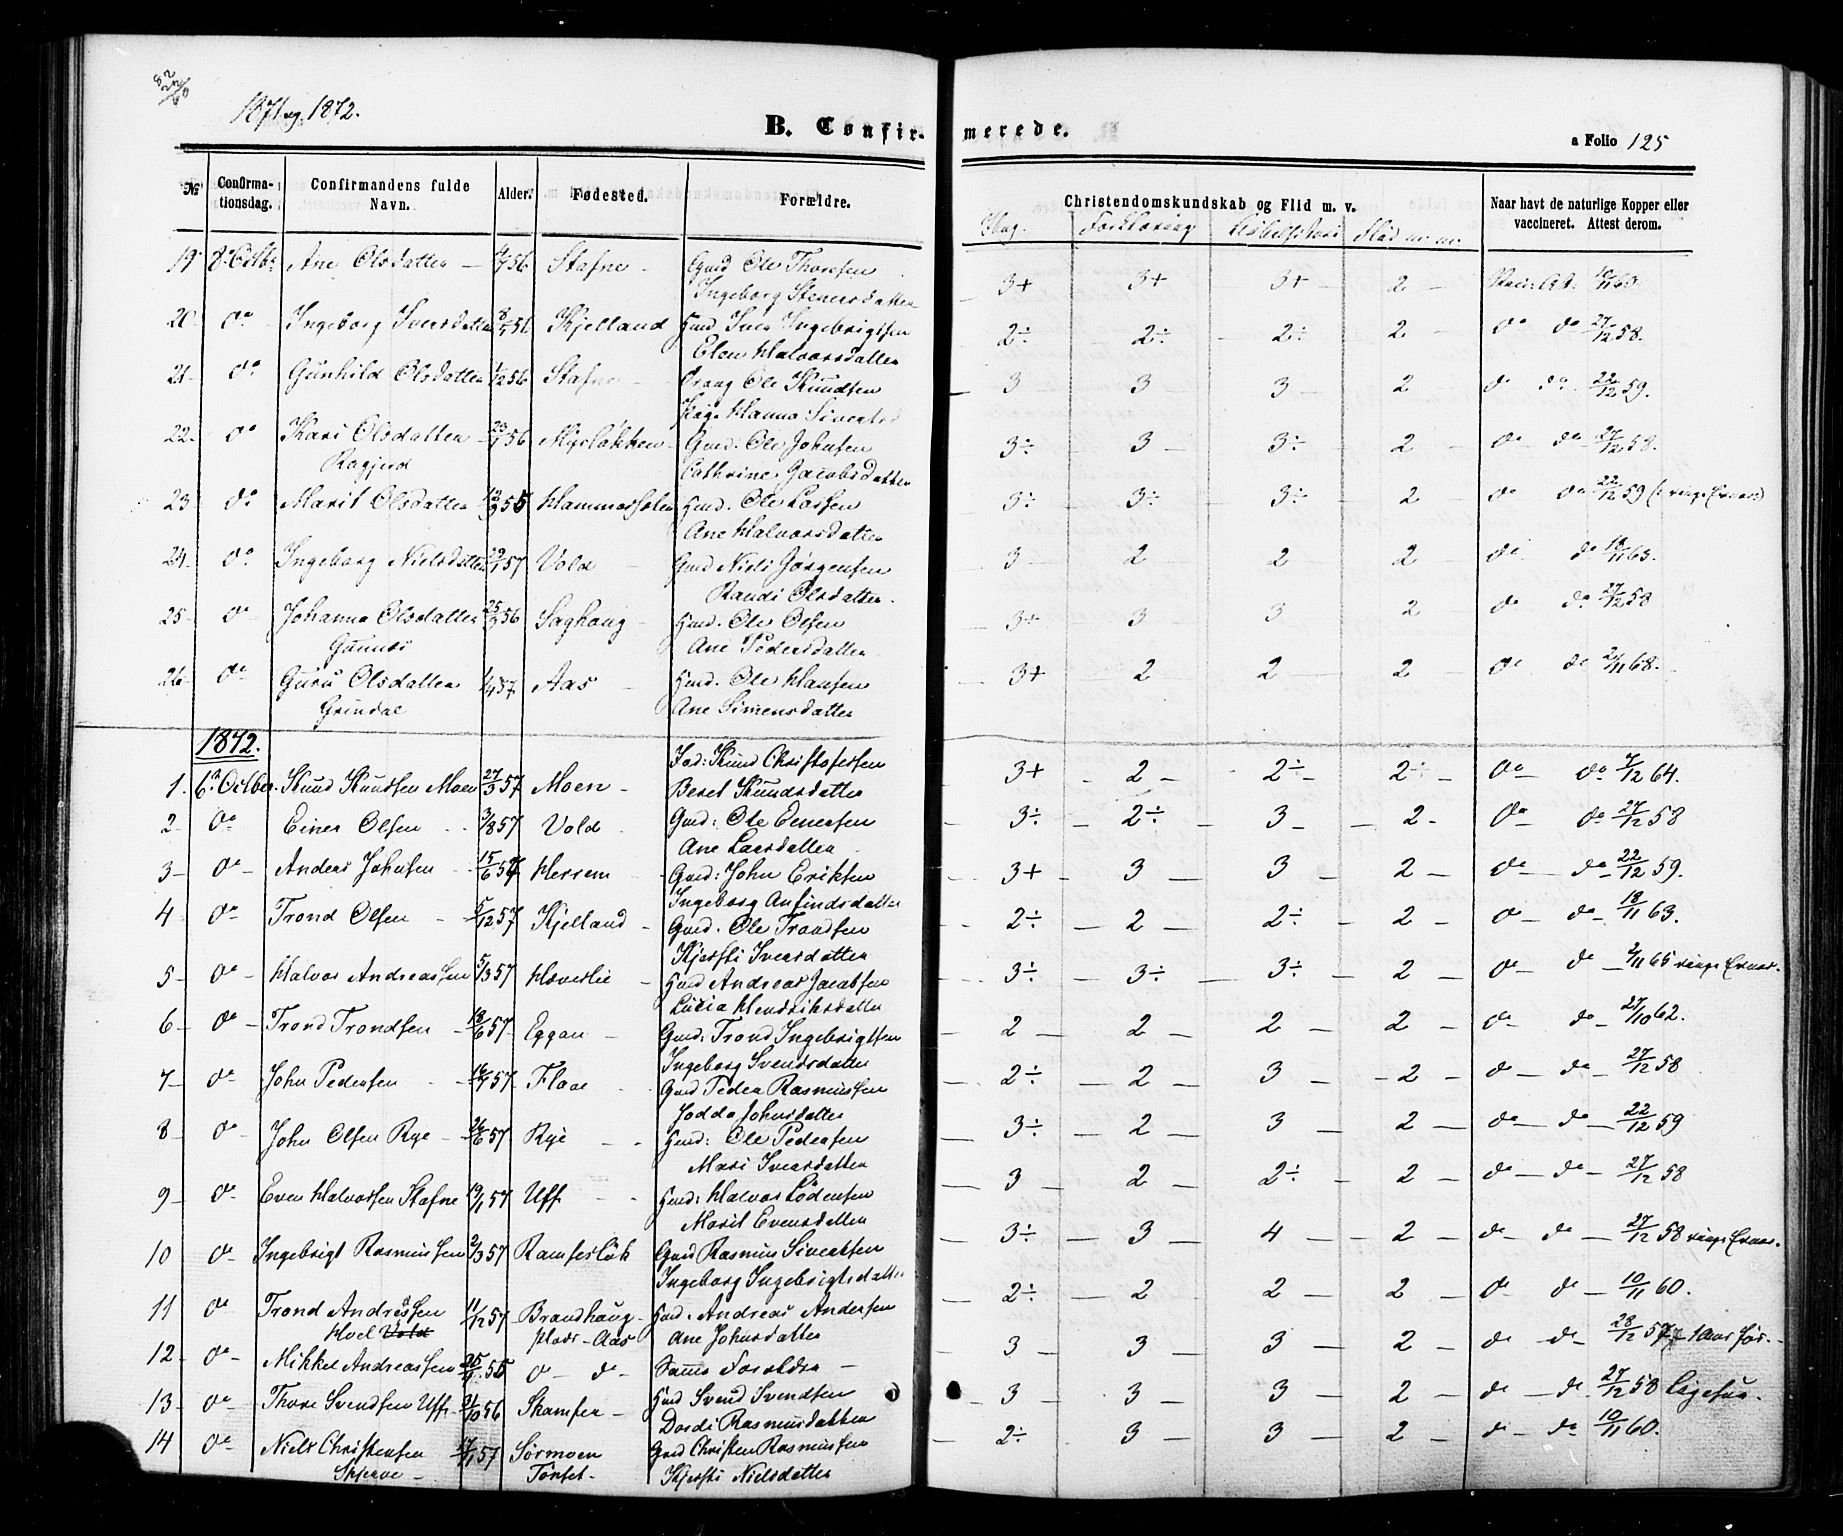 1871 og 1872.
B. Confirmerede.
a Folio 125
No Confirmationsdag. Confirmandens fulde Navn. Alder. Fødested. Forældre. Christendomskundskab og Flid m. v. Naar havt de naturlige Kopper eller vaccineret. Attest derom.
Forklaring Flid m. m.
19 8de Octbr Ane Olsdatter 56 Stafne Gmd Ole Thoresen 3+ 3+ 3+ 2
Ingeborg Stenersdatter
20 do Ingeborg Iversdatter 56 Kjelland Hmd Iver Ingebrigtsen 2÷ 2÷ 2÷ 2 do do 27/12 58.
Elen Halvorsdatter
21 do Gunhild Olsdatter 56 Stafne Ole Knudsen 3 3 3 2 do do 22/12 59.
22 do Kari Olsdatter 56 Gmd: Ole Johnsen 3÷ 3 3÷ 2 do do 27/12 58.
Cathrine Jacobsdatter
23 do Marit Olsdatter 55 Hmd. Ole Larsen 3÷ 3÷ 3÷ 2 do do 22/12 59
Ane Halvorsdatter
24 do Ingeborg Nielsdatter 57 Vold Gmd Niels Jørgensen 3 2 2 2 do do 18/11 63.
Randi Olsdatter
25 do Johanna Olsdatter 56 Saghaug Hmd. Ole Olsen 3+ 3 3 2 do do 27/12 58
Ane Pedersdatter
26 do Guru Olsdatter 57 Aas Hmd. Ole Hansen 3+ 2 2 2 do do 2/11 68.
Grindal Ane Simensdatter
1872.
1 6te Octber Knud Knudsen Moen 27/3 57 Moen Knud Christofersen 3+ 2 2÷ 2÷ do do 7/12 64.
Beret Knudsdatter
2 do Einer Olsen 3/8 57 Vold Gmd: Ole Enersen 3÷ 2÷ 3 2 do do 27/12 58
Ane Larsdatter
3 do Anders Johnsen 15/6 57 Herrem Gmd: John Eriksen 3+ 3 3 2 do do 22/12 59.
Ingeborg Anfindsdatter
4 do Trond Olsen 5/12 57 Kjelland Gmd. Ole Trondsen 2÷ 2 2÷ 2 do do 18/11 63.
Kjersti Iversdatter
5 do Halvor Andreassen 5/3 57 Haverlie Hmd Andreas Jacobsen 3÷ 3÷ 3÷ 2 do do 2/11 65
Lucia Hendriksdatter
6 do Trond Trondsen 18/6 57 Eggan Gmd: Trond Ingebrigtsen 2 2 2 2 do do 27/10 62.
Ingeborg Svendsdatter
7 do John Pedersen 57 Flaae Gmd Peder Rasmussen 2÷ 2 3 2 do do 27/12 58
Jodda Johnsdatter
8 do John Olsen Rye 57 Rye Hmd: Ole Pedersen 3÷ 2 3 2 do do 22/12 59
Mari Iversdatter
9 do Even Halvorsen Stafne 19/1 57 Uff Hmd: Halvor Lodensen 3 2 2÷ 2 do do 27/12 58
Marit Evensdatter
10 do Ingebrigt Rasmussen 2/3 57 Ramsesløk Gmd Rasmus Sivertsen 3÷ 3 4 2 do do 27/12 58
Ingeborg Ingebrigtsdatter
11 do Trond Andreassen 11/12 57 Brandhaug Hmd. Andreas Andersen 2÷ 2 2 2 do do 10/11 60.
Hoel Vold plads Aas Ane Johnsdatter
12 do Mikkel Andreassen 55 do do Samme Forældre 3 3 3 2 do do 28/12 57
13 do Thore Svendsen Uff 21/10 56 Skamfer Hmd Svend Svendsen 3 3 3 2 do do 27/12 58 Ligesaa.
Dordi Rasmusdatter
14 do Niels Christensen 17/1 57 Sørmoen Gmd Christen Rasmussen 2÷ 3 3 2 do do 10/11 60.
Skjerve Tønset Kjersti Nielsdatter